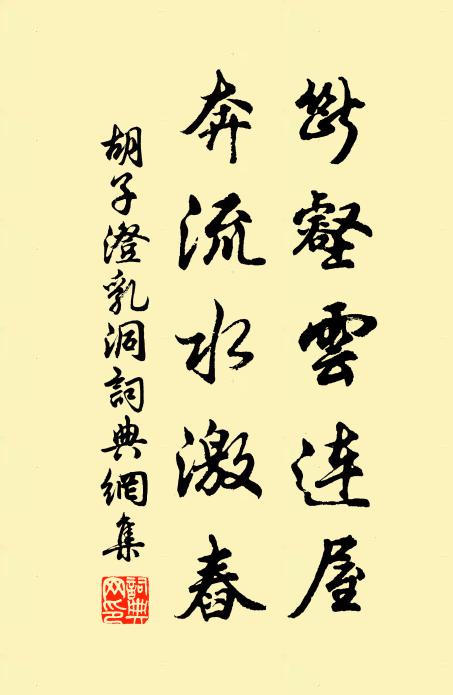 斷壑雲連屋
奔流水激舂
胡子澄乳洞詞典網集
詞典
网印